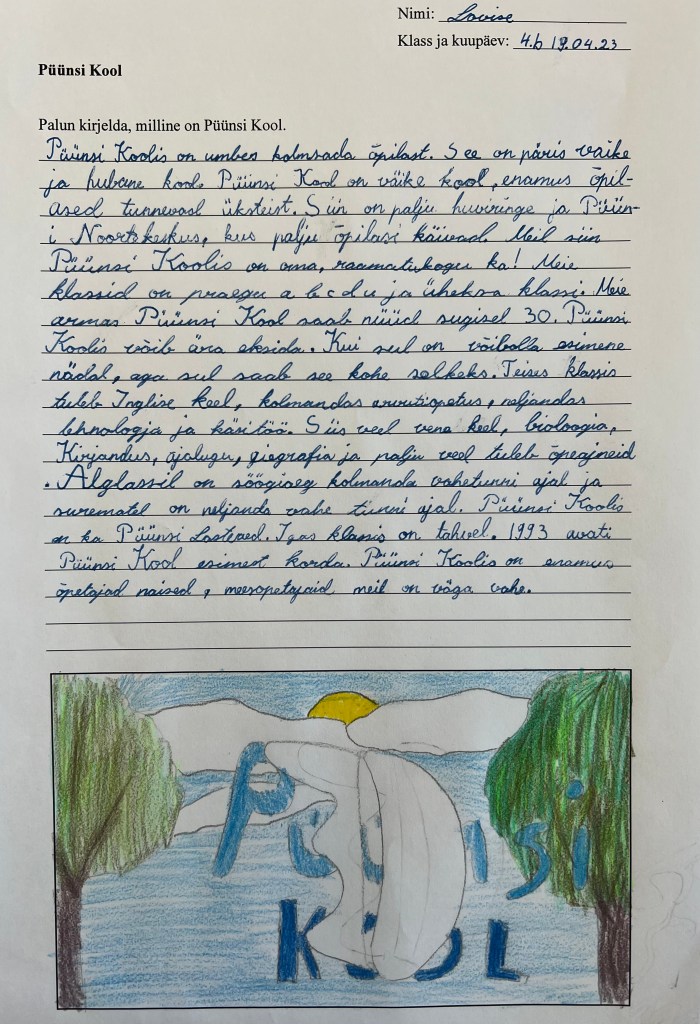 Nimi: Lovise
Klass ja kuupäev: 4.b 19.04.23
Püünsi Kool
Palun kirjelda, milline on Püünsi Kool.
Püünsi Koolis on umbes kolmsada õpilast. See on päris väike
ja hubane kool. Püünsi Kool on väike kool, enamus õpil-
ased tunnevad üksteist. Siin on palju huviringe ja Püün-
i Noortekeskus, kus palju õpilasi käivad. Meil siin
Püünsi Koolis on oma, raamatukogu ka! Meie
klassid on praegu a b c d u ja üheksa klassi. Meie
armas Püünsi Kool saab nüüd sügisel 30. Püünsi
Koolis võib ära eksida. Kui sul on võibolla esimene
nädal, aga sul saab see kohe selkeks. Teises klassis
tuleb Inglise keel, kolmandas arvutiopetus, neljandas
tehnologja ja käsitöö. Siis veel vene keel, bioloogia,
Kirjandus, ajalugu, giegrafia ja palju veel tuleb õpeajneid
. Alglassil on söögiaeg kolmanda vahetunni ajal ja
suurematel on neljanda vahe tunni ajal. Püünsi Koolis
on ka Püünsi Lasteaed. Igas klassis on tahvel. 1993 avati
Püünsi Kool esimest korda. Püünsi Koolis on enamus
õpetajad naised, meesopetajaid meil on väga vähe.
PÜÜNSI
KOOL